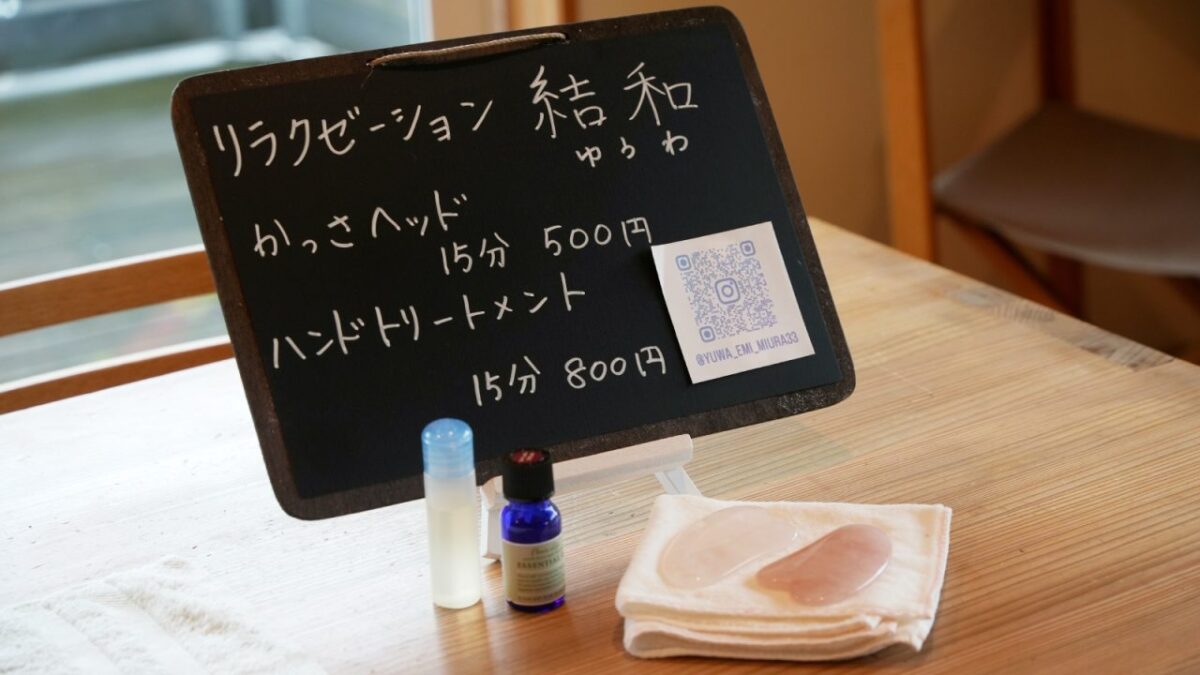 リラクゼーション 結和
ゆうわ
かっさヘッド
15分 500円
ハンドトリートメント
15分 800円
@YUWA_EMI_MIURA33
ESSENTIAL